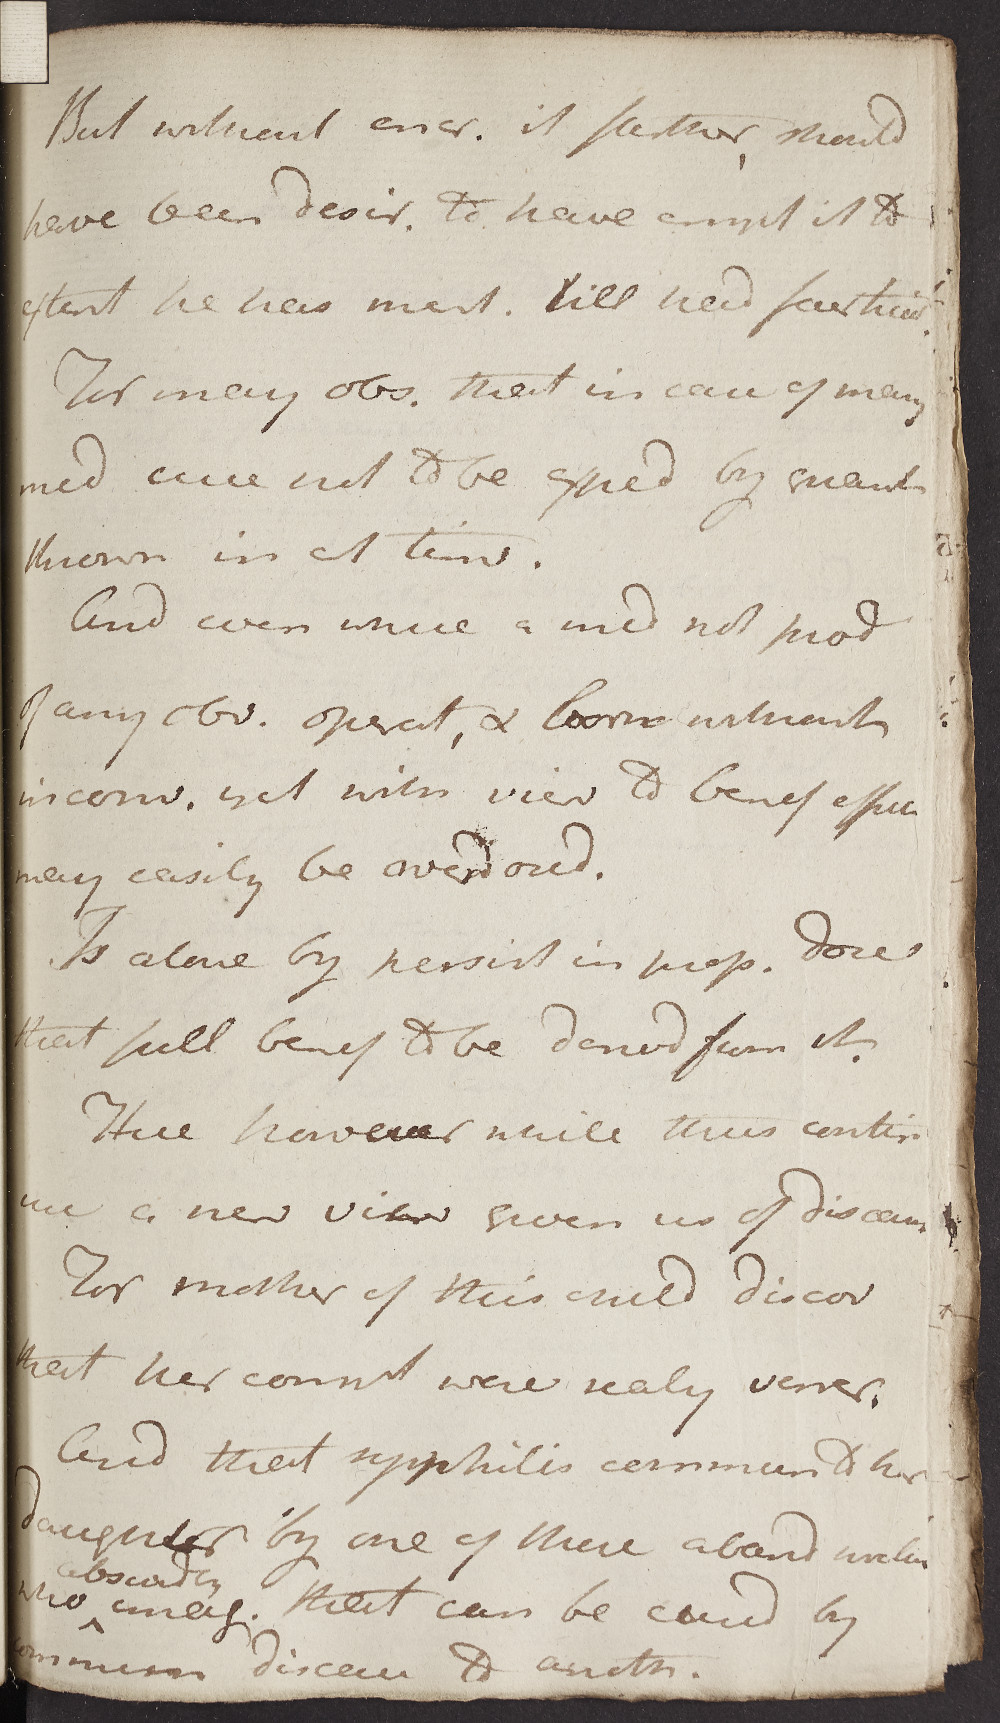 But without encr. it farther, should
have been desir. to have empl it to
extent he has ment. till had farther
For many obs. that in case of many
med cure not to be exped by quant
thrown in at time.
And even where a med not prod
of any obv. operat, & born without
inconv. yet with view to benef effec
may easily be overdosed.
Is alone by persist in prop. doses
that full benef to be derived from it.
Here however while thus contin
ue a new view given us of disease
For mother of this child discov
that her comnt were realy vener.
And that syphilis commun to her
daughter by one of these aband wretch
who absurdly imag. that can be cured by
commun disease to anoth.